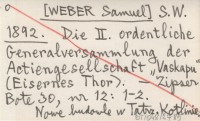 [WEBER Samuel] S.W.
1892. Die II. ordentliche
Generalversammlung der
Actiengesellschaft „Vaskapu"
(Eisernes Thor). Zipser
Bote 30, nr 12: 1-2.
Nowe budowle w Tatrz. Kotlinie.